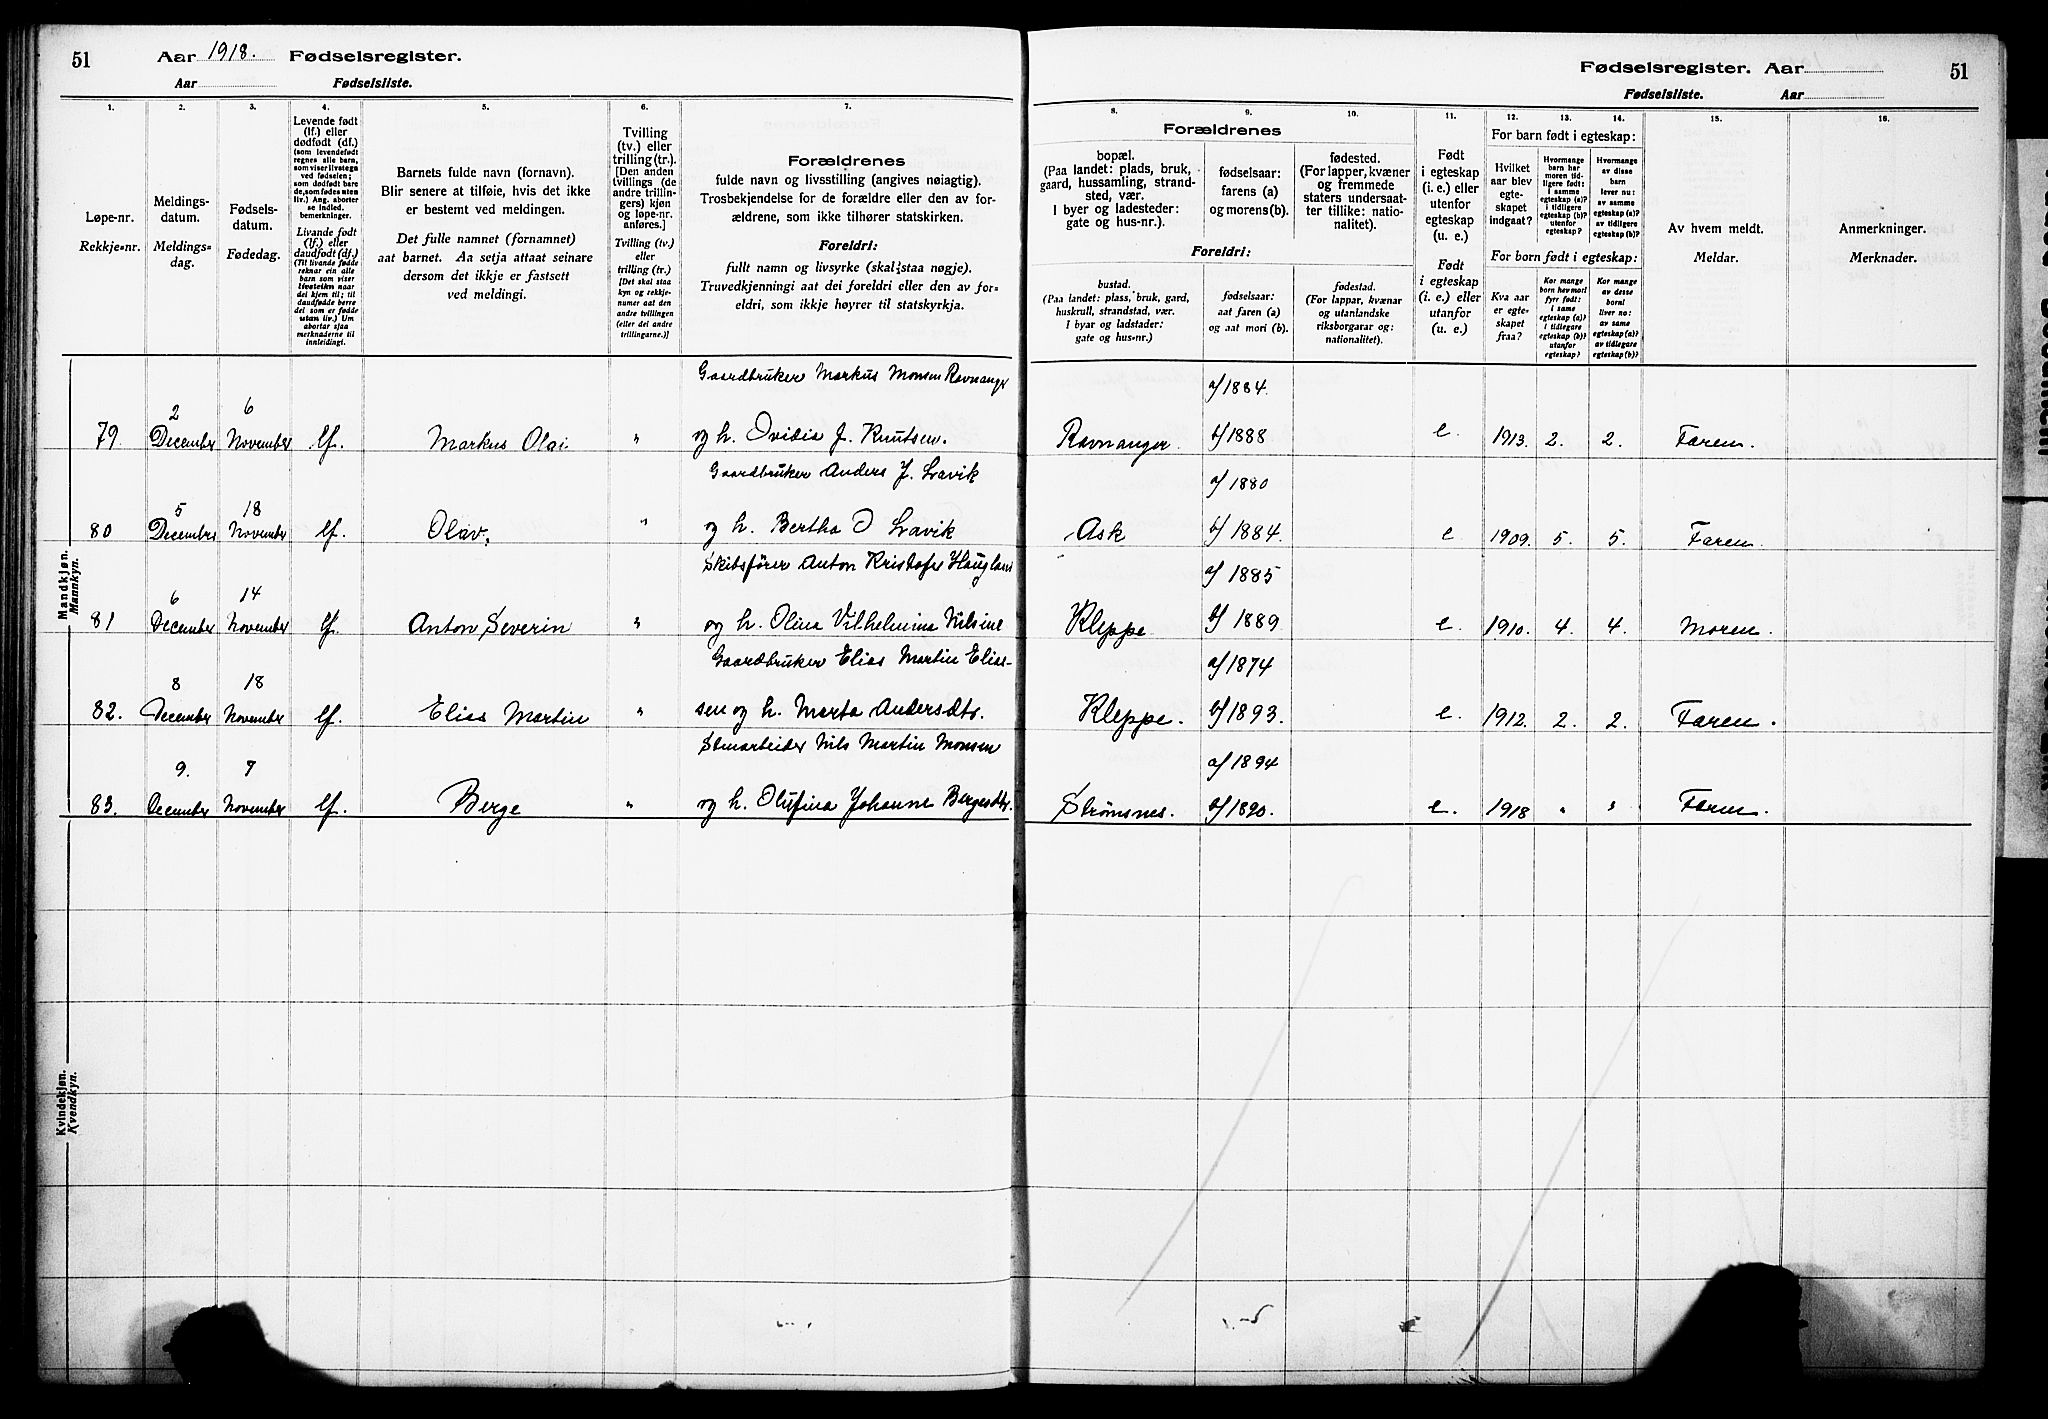 51 Aar 1918. Fødselsregister.
Aar Fødselsliste.
Fødselsregister. Aar 51
Fødselsliste. Aar
1. 2. 3. 4. 5. 6. 7.
Løpe-nr.
Rekkje=nr.
Meldings-
datum.
Meldings=
dag.
Fødsels-
datum.
Fødedag.
Levende født
(lf.) eller
dødfødt (df.)
(som levendefødt
regnes alle barn,
som viser livstegn
ved fødselen;
som dødfødt bare
de, som fødes uten
liv.) Ang. aborter
se indled.
bemerkninger.
Livande født
(lf.) eller
daudfødt (df.)
(Til livande fødde
reknar ein alle
barn som viser
livsteikn naar
dei kjem til; til
daudfødde berre
dei som er fødde
utan liv.) Um
abortar sjaa
merknaderne til
innleidingi.
Barnets fulde navn (fornavn).
Blir senere at tilføie, hvis det ikke
er bestemt ved meldingen.
Det fulle namnet (fornamnet)
aat barnet. Aa setja attaat seinare
dersom det ikkje er fastsett
ved meldingi.
Tvilling
(tv.) eller
trilling (tr.).
[Den anden
tvillings (de
andre trillin-
gers) kjøn
og løpe-nr.
anføres.]
Tvilling (tv.)
eller
trilling (tr.)
[Det skal staa
kyn og rekkje-
numer aat den
andre tvillingen
(eller dei andre
trillingarne.)]
Forældrenes
fulde navn og livsstilling (angives nøiagtig).
Trosbekjendelse for de forældre eller den av for-
ældrene, som ikke tilhører statskirken.
Foreldri:
fullt namn og livsyrke (skal staa nøgje).
Truvedkjenningi aat dei foreldri eller den av for=
eldri, som ikkje høyrer til statskyrkja.
8. 9. 10. 11. 12. 13. 14. 15. 16.
Forældrenes
bopæl.
(Paa landet: plads, bruk,
gaard, hussamling, strand-
sted, vær.
I byer og ladesteder:
gate og hus-nr.).
fødselsaar:
farens (a)
og morens (b).
fødested.
(For lapper, kvæner
og fremmede
staters undersaat-
ter tillike: natio-
nalitet).
Foreldri:
bustad.
(Paa landet: plass, bruk, gard,
huskrull, strandstad, vær.
I byar og ladstader:
gate og hus=nr.)
fødselsaar:
aat faren (a)
og aat mori (b).
fødestad.
(For lappar, kvænar
og utanlandske
riksborgarar og:
nationalitet).
Født
i egteskap
(i. e.) eller
utenfor
egteskap
(u. e.)
Født
i egteskap
(i. e.) eller
utanfor
(u. e.).
For barn født i egteskap:
Hvilket
aar blev
egte-
skapet
indgaat?
Hvormange
barn har
moren tid-
ligere født:
i samme
egteskap (a)?
i tidligere
egteskap (b)?
utenfor
egteskap?
Hvormange
av disse
barn
lever nu:
av samme
egteskap (a)?
av tidligere
egteskap (b)?
For born født i egteskap:
Kva aar
er egte=
skapet
fraa?
Kor mange
born hev mori
fyre født:
i same
egteskap (a)?
i tidlegare
egteskap (b)?
utanfor
egteskap?
Kor mange
av desse
borni
liver no:
av same
egteskap (a)?
av tidlegare
egteskap (b)?
Av hvem meldt.
Meldar.
Anmerkninger.
Merknader.
Mandkjøn.
Mannkyn.
Gaardbruker Markus Monsen Ravnanger a/ 1884.
2 6
79. December November lf. Markus Olai " og h. Ovidia J. Knutsen. Ravnanger. b/ 1888 e. 1913. 2. 2. Faren.
Gaardbruker Anders J. Lavik a/ 1880
5 18
80 December November lf. Olav. " og h. Bertha O Lavik Ask b/ 1884. e 1909. 5. 5. Faren.
Skibsfører Anton Kristofer Haugland a/ 1885
6 14
81 December November lf. Anton Severin " og h. Olina Vilhelmina Nilsine Kleppe b/ 1889 e. 1910. 4. 4. Moren.
Gaardbruker Elias Martin Elias- a/ 1874
8 18
82. December November lf. Elias Martin " sen og h. Marta Andersdtr. Kleppe. b/ 1893. e. 1912. 2. 2. Faren.
Stenarbeider Nils Martin Monsen a/ 1894
9. 7
83. December November lf. Berge " og h. Olufina Johanne Bergesdtr. Strømsnes. b/ 1890. e. 1918 " " Faren.
Kvindekjøn.
Kvendkyn.